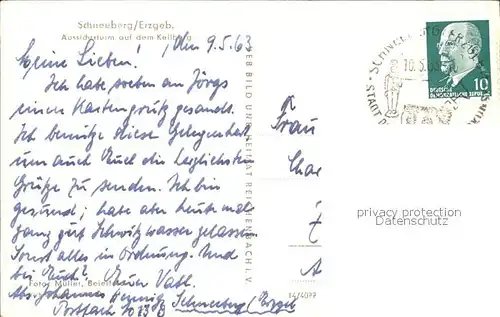 Schneeberg/Erzgeb.
Aussichtsturm auf dem Keilberg
den 9.5.63
Meine Lieben!
Ich habe soeben an Jörgs
einen Kartengruß gesandt.
Ich benutze diese Gelegenheit
um auch Euch die herzlichsten
Grüße zu senden. Ich bin
gesund; habe aber heute mal
ganz gut Schwitzwasser gelassen.
Sonst alles in Ordnung. Und
bei Euch? Euer Vati.
Foto: Müller, Beierfeld
Abs. Johannes Hennig, Schneeberg/Erzgeb
Postfach
BILD UND HEIMAT REICHENBACH I. V.
Frau
Char
14/4099
SCHNEEBERG (ERZGEB)
10.5.63
STADT
DEUTSCHE
DEMOKRATISCHE REPUBLIK
10
privacy protection
oldthing.de